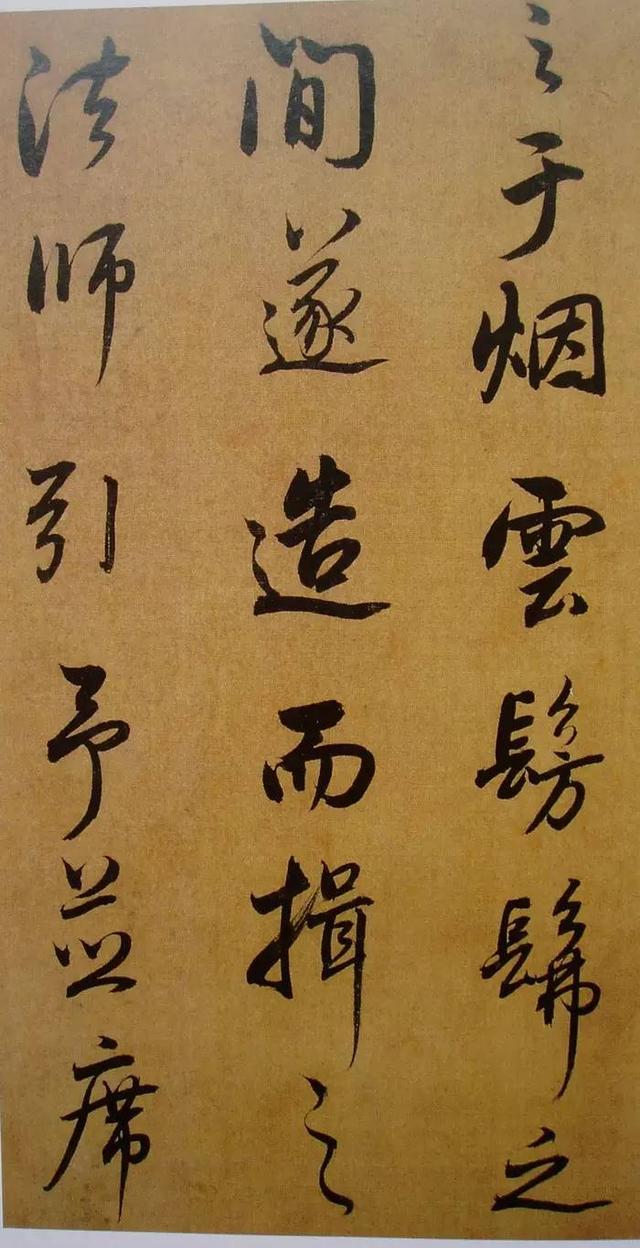 之于烟雲髣髴之
间遂造而揖之
法师引予並席